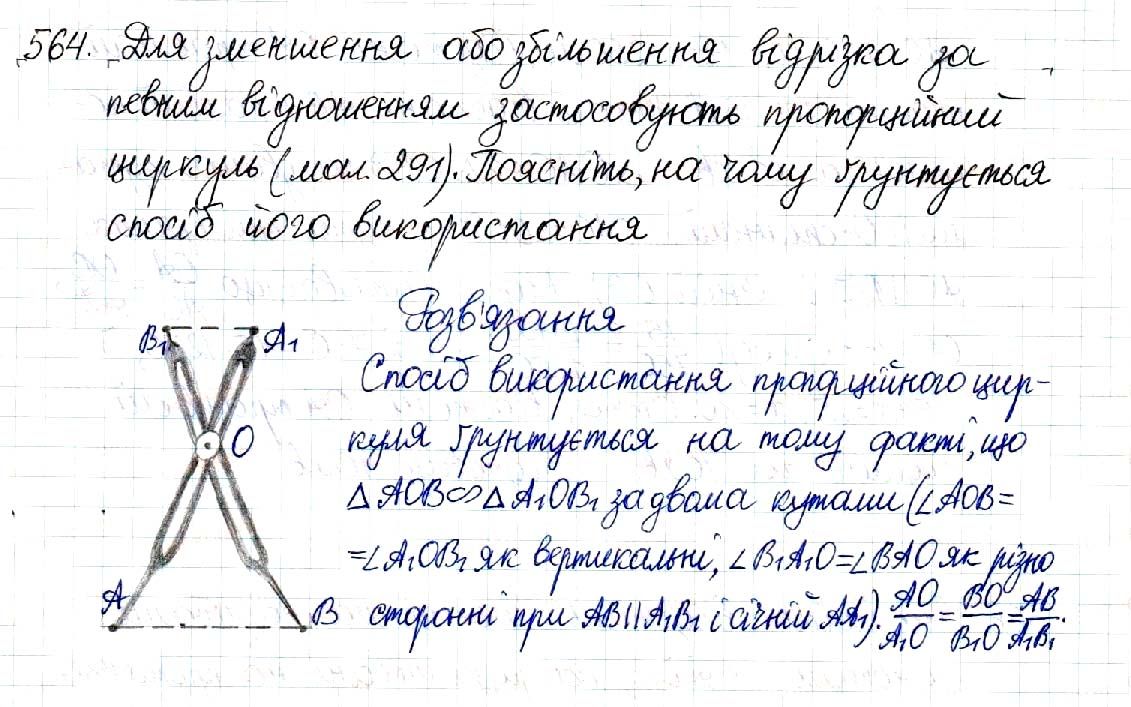 564. Для зменшення або збільшення відрізка за
певним відношенням застосовують пропорційний
циркуль (мал. 291). Поясніть, на чому ґрунтується
спосіб його використання
Розв'язання
B₁ A₁
O
A B
Спосіб використання пропорційного цир-
куля ґрунтується на тому факті, що
△AOB∽△A₁OB₁ за двома кутами (∠AOB=
=∠A₁OB₁ як вертикальні, ∠B₁A₁O=∠BAO як різно
сторонні при AB||A₁B₁ і січній AA₁). AO/A₁O=BO/B₁O=AB/A₁B₁.